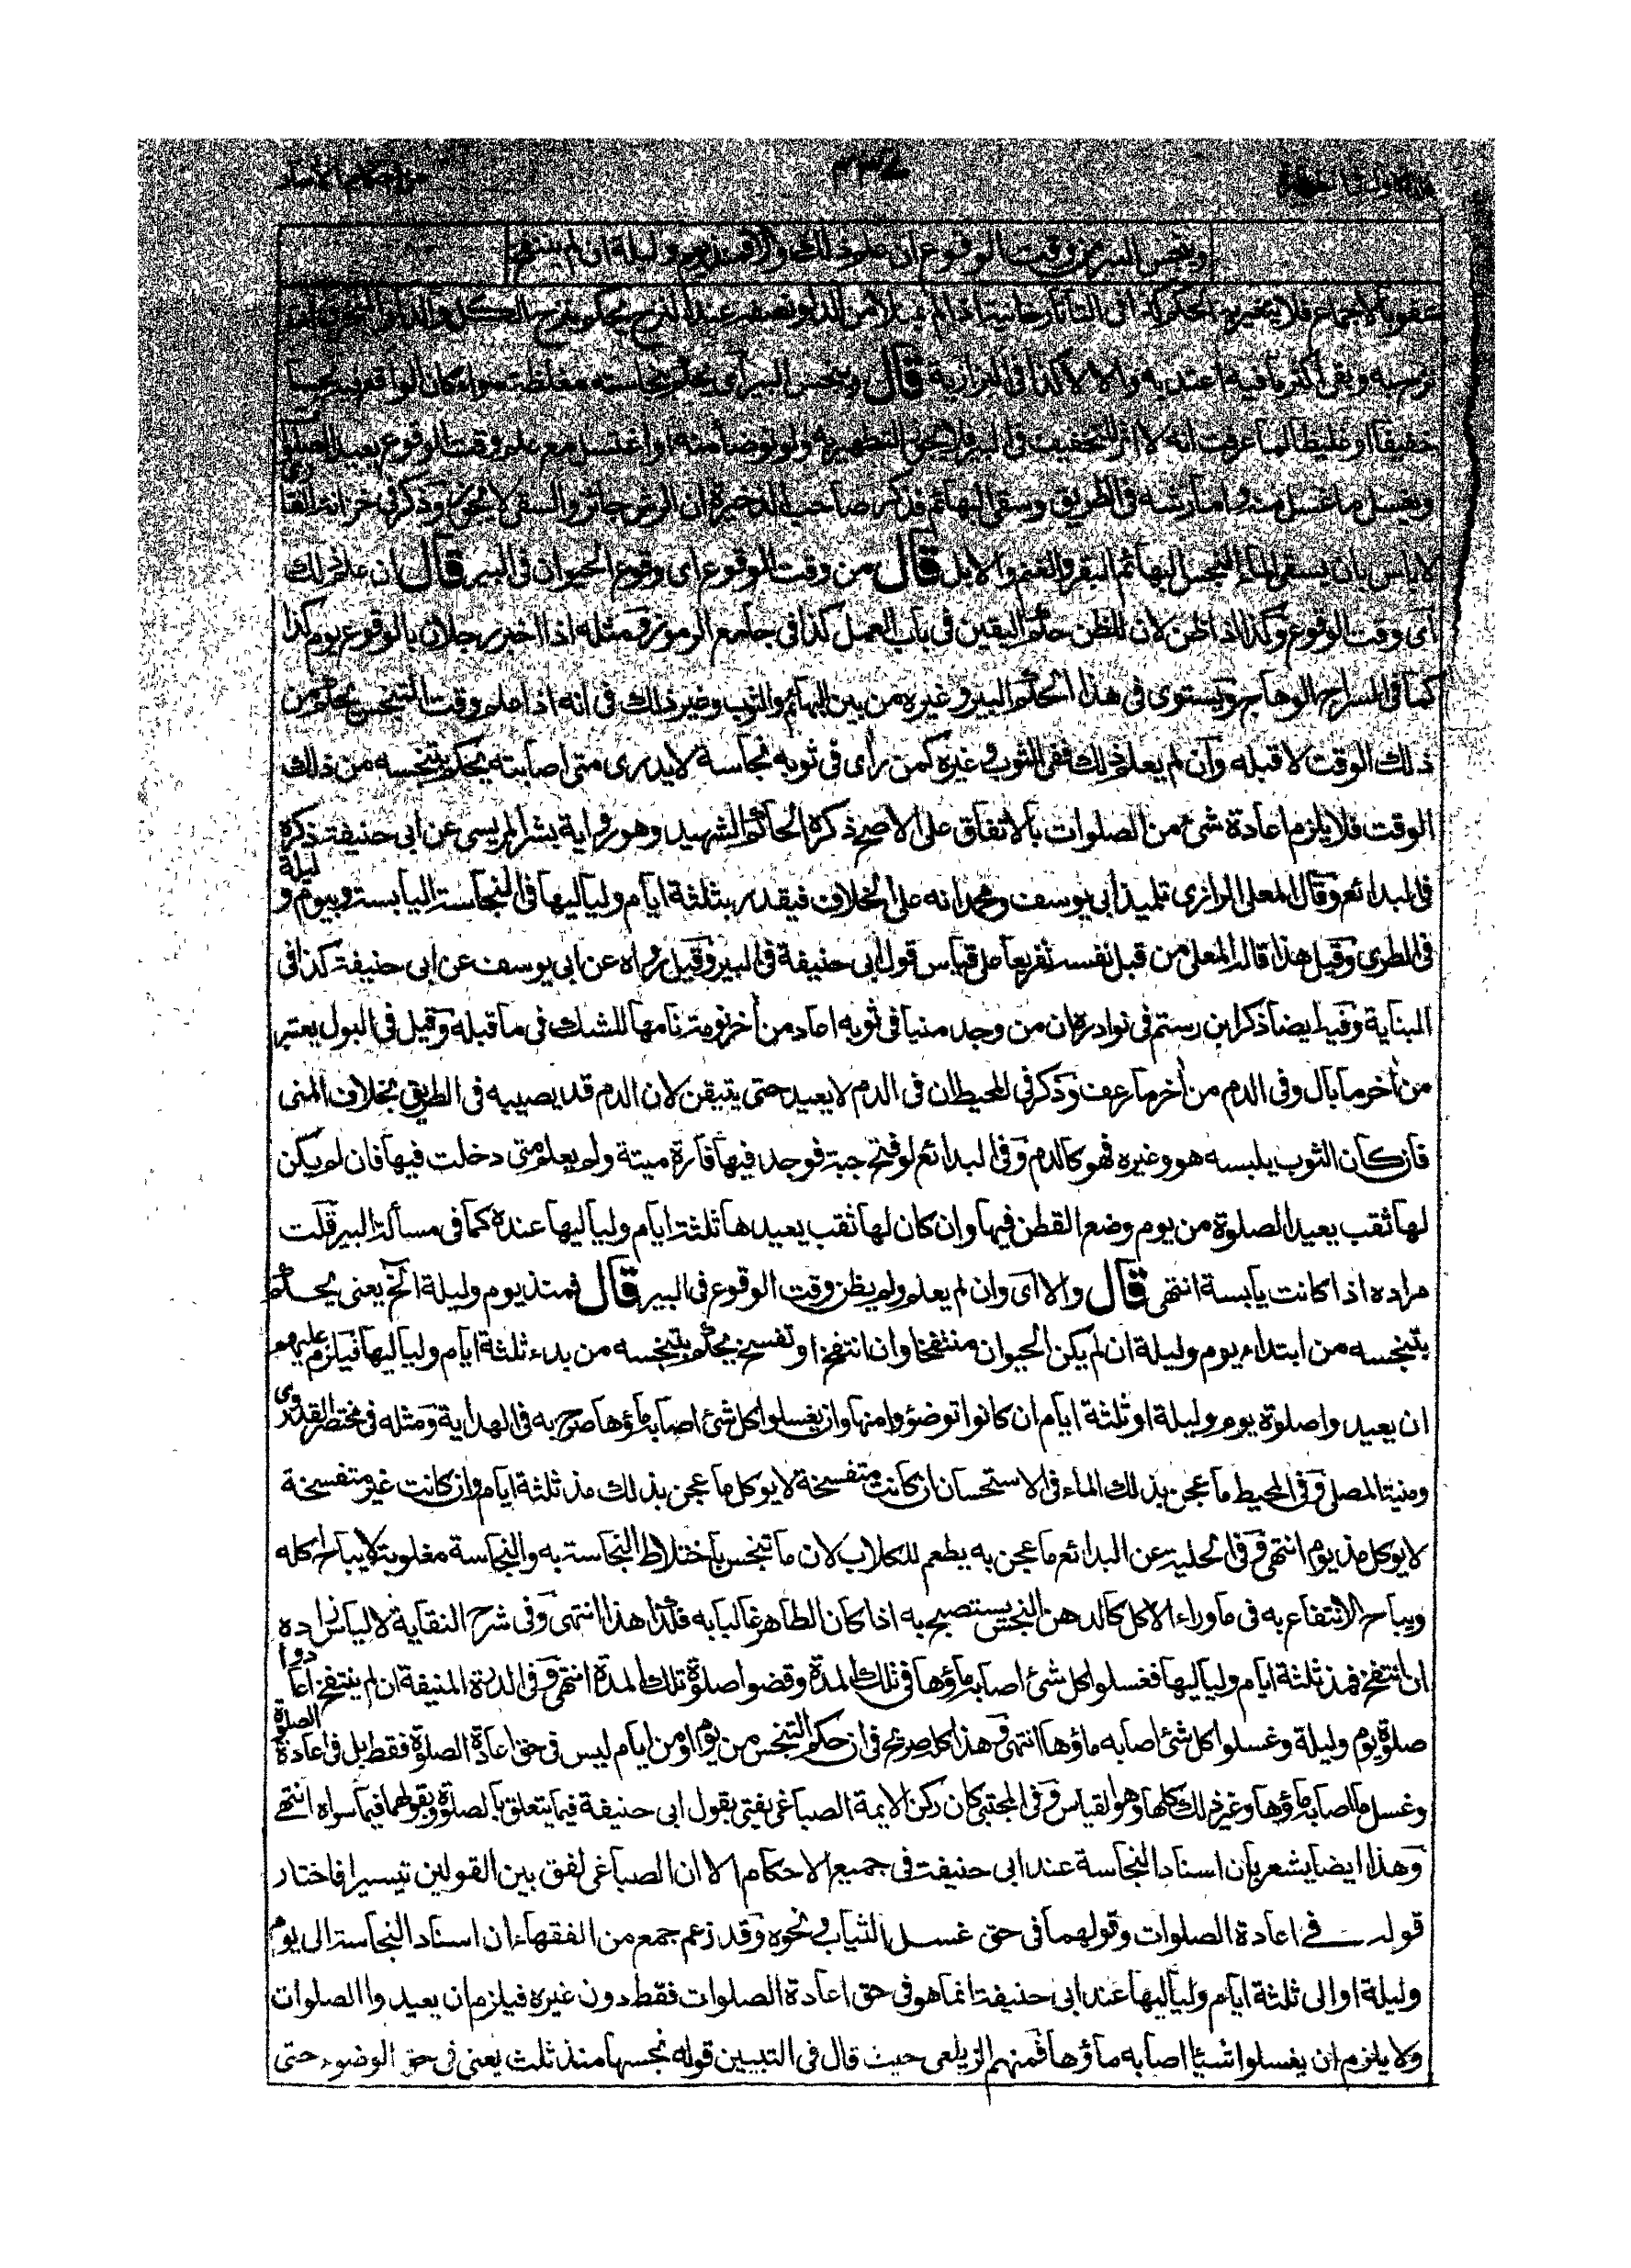 وينجس البير من وقت الوقوع ان علم ذلك والا فمنذ يوم وليلة ان لم ينتفخ
عفو بالاجماع فلا يتغير به الحكم كذا في التاتارخانية اذا لم يمتلأ من الدلو نصفه عند النزح يحكم بنزح الكل
وبقى اكثر ما فيه اعتد به والا لا كذا فى البزازية قال وينجس البير اى يحكم بنجاسته مغلظة سواء كان الواقع فيه نجسا
خفيفا او غليظا لما عرفت انه لا اثر للتخفيف فى البير فلا يجوز التطهير به ولو توضأ منه او اغتسل مع علم وقت الوقوع يعيد الصلوة
ويغسل ما غسل منه واما رشه فى الطريق وسقى البهائم فذكر صاحب الذخيرة ان الرش جائز والسقى لا يجوز وذكر فى خزانة الفتاوى
لا باس بان يسقى الماء النجس البهائم البقر والغنم والابل قال من وقت الوقوع اى وقوع الحيوان فى البير قال ان علم ذلك
اى وقت الوقوع وكذا اذا ظن لان للظن حكم اليقين فى باب العمل كذا فى جامع الرموز ومثله اذا اخبر رجلان بالوقوع يوم كذا
كما فى السراج الوهاج ويستوى فى هذا الحكم البير وغيره من بين البهائم والثوب وغير ذلك فى انه اذا علم وقت التنجس يحكم من
ذلك الوقت لا قبله وان لم يعلم ذلك ففى الثوب وغيره كمن رأى فى ثوبه نجاسة لا يدرى متى اصابته يحكم بتنجسه من ذلك
الوقت فلا يلزم اعادة شئ من الصلوات بالاتفاق على الاصح ذكره الحاكم الشهيد وهو رواية بشر المريسى عن ابى حنيفة ذكره
فى البدائع وقال المعلى الرازى تلميذ ابى يوسف ومحمد انه على الخلاف فيقدر بثلثة ايام ولياليها فى النجاسة اليابسة وبيوم وليلة
فى الطرى وقيل هذا قاله المعلى من قبل نفسه تفريعا على قياس قول ابى حنيفة فى البير وقيل رواه عن ابى يوسف عن ابى حنيفة كذا فى
البناية وفيه ايضا ذكر ابن رستم فى نوادره ان من وجد منيا فى ثوبه اعاد من أخر نومة نامها للشك فى ما قبله وقيل فى البول يعتبر
من أخر ما بال وفى الدم من أخر ما رعف وذكر فى المحيط ان فى الدم لا يعيد حتى يتيقن لان الدم قد يصيبه فى الطريق بخلاف المنى
فان كان الثوب يلبسه هو وغيره فهو كالدم وفى البدائع لو فتح جبة فوجد فيها فارة ميتة ولم يعلم متى دخلت فيها فان لم يكن
لها ثقب يعيد الصلوة من يوم وضع القطن فيها وان كان لها ثقب يعيدها ثلثة ايام ولياليها عنده كما فى مسألة البير قلت
مراده اذا كانت يابسة انتهى قال والا اى وان لم يعلم ولم يظن وقت الوقوع فى البير قال فمنذ يوم وليلة الخ يعنى يحكم
بتنجسه من ابتداء يوم وليلة ان لم يكن الحيوان منتفخا وان انتفخ او تفسخ يحكم بتنجسه من بدء ثلثة ايام ولياليها فيلزم عليهم
ان يعيدوا صلوة يوم وليلة او ثلثة ايام ان كانوا توضؤوا منها وان يغسلوا كل شئ اصابه ماؤها صرح به فى الهداية ومثله فى مختصر القدورى
ومنية المصلى وفى المحيط ما عجن بذلك الماء فى الاستحسان ان كانت متفسخة لا يوكل ما عجن بذلك مذ ثلثة ايام وان كانت غير متفسخة
لا يوكل مذ يوم انتهى وفى الحلية عن البدائع ما عجن به يطعم للكلاب لان ما تنجس باختلاط النجاسة به والنجاسة مغلوبة لا يباح اكله
ويباح الانتفاع به فى ما وراء الاكل كالدهن النجس يستصبح به اذا كان الطاهر غالبا به فكذا هذا انتهى وفى شرح النقاية لالياس زاده
ان انتفخ فمذ ثلثة ايام ولياليها فغسلوا كل شئ اصابه ماؤها فى تلك المدة وقضوا صلوة تلك المدة انتهى وفى الدرة المنيفة ان لم ينتفخ اعادوا
صلوة يوم وليلة وغسلوا كل شئ اصابه ماؤها انتهى وهذا كله صريح فى ان حكم التنجس من يوم او من ايام ليس فى حق اعادة الصلوة فقط بل فى اعادة الصلوة
وغسل ما اصابه ماؤها وغير ذلك كلها وهو القياس وفى المجتبى كان ركن الايمة الصباغى يفتى بقول ابى حنيفة فيما يتعلق بالصلوة وبقولهما فيما سواه انتهى
وهذا ايضا يشعر بان اسناد النجاسة عند ابى حنيفة فى جميع الاحكام الا ان الصباغى لفق بين القولين تيسيرا فاختار
قوله فى اعادة الصلوات وقولهما فى حق غسل الثياب ونحوه وقد زعم جمع من الفقهاء ان اسناد النجاسة الى يوم
وليلة او الى ثلثة ايام ولياليها عند ابى حنيفة انما هو فى حق اعادة الصلوات فقط دون غيره فيلزم ان يعيدوا الصلوات
ولا يلزم ان يغسلوا شيئا اصابه ماؤها فمنهم الزيلعى حيث قال فى التبيين قوله نجسها منذ ثلث يعنى فى حق الوضوء حتى